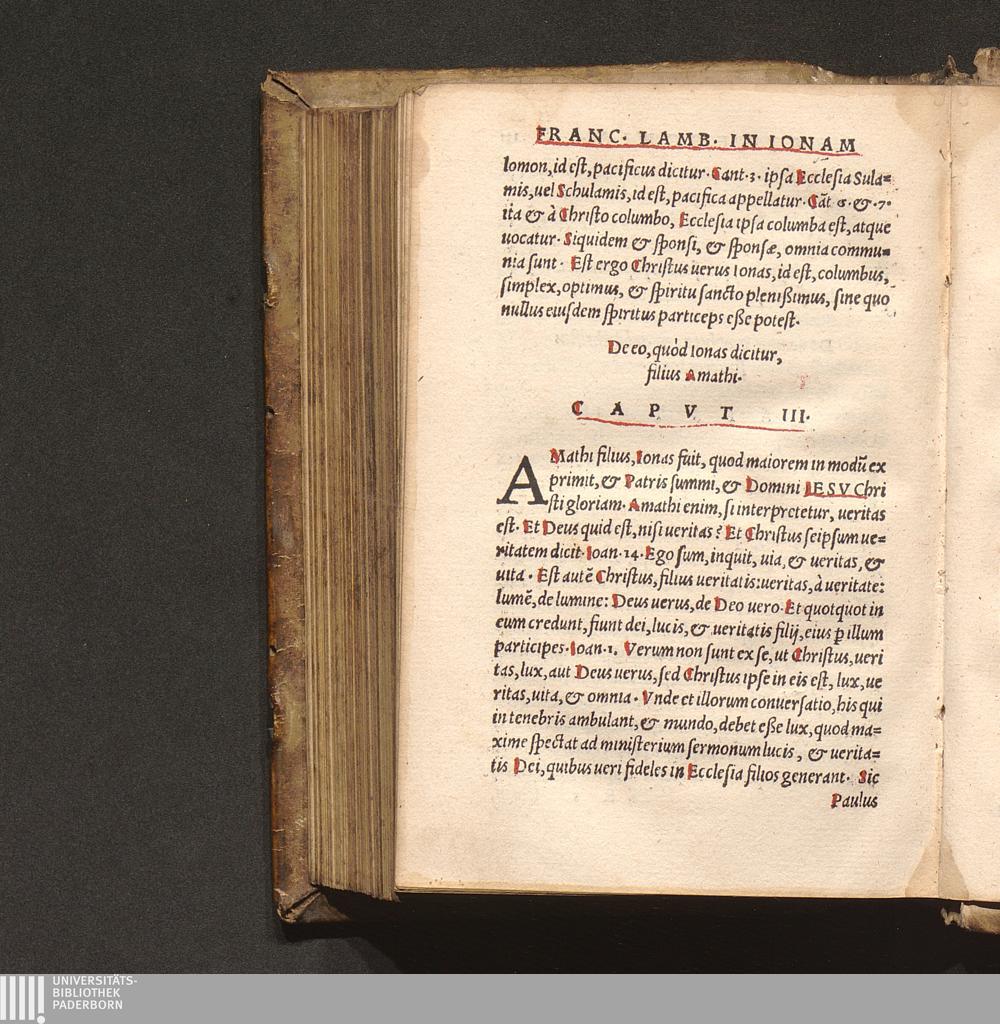 FRANC. LAMB. IN IONAM
lomon, id est, pacificus dicitur. Cant. 3. ipsa Ecclesia Sula=
mis, uel Schulamis, id est, pacifica appellatur. Cãt 6. & .7.
ita & à Christo columbo, Ecclesia ipsa columba est, atque
uocatur. Siquidem & sponsi, & sponsæ, omnia commu=
nia sunt. Est ergo Christus uerus Ionas, id est, columbus,
simplex, optimus, & spiritu sancto plenißimus, sine quo
nullus eiusdem spiritus particeps eße potest.
De eo, quòd Ionas dicitur,
filius Amathi.
CAPVT III.
AMathi filius, Ionas fuit, quod maiorem in modũ ex
primit, & Patris summi, & Domini IESV Chri
sti gloriam. Amathi enim, si interpretetur, ueritas
est. Et Deus quid est, nisi ueritas? Et Christus seipsum ue=
ritatem dicit. Ioan. 14. Ego sum, inquit, uia, & ueritas, &
uita. Est autẽ Christus, filius ueritatis: ueritas, à ueritate:
lumẽ, de lumine: Deus uerus, de Deo uero. Et quotquot in
eum credunt, fiunt dei, lucis, & ueritatis filij, eius p illum
participes. Ioan. 1. Verum non sunt ex se, ut Christus, ueri
tas, lux, aut Deus uerus, sed Christus ipse in eis est, lux, ue
ritas, uita, & omnia. Vnde et illorum conuersatio, his qui
in tenebris ambulant, & mundo, debet eße lux, quod ma=
xime spectat ad ministerium sermonum lucis, & uerita=
tis Dei, quibus ueri fideles in Ecclesia filios generant. Sic
Paulus
UNIVERSITÄTS-
BIBLIOTHEK
PADERBORN